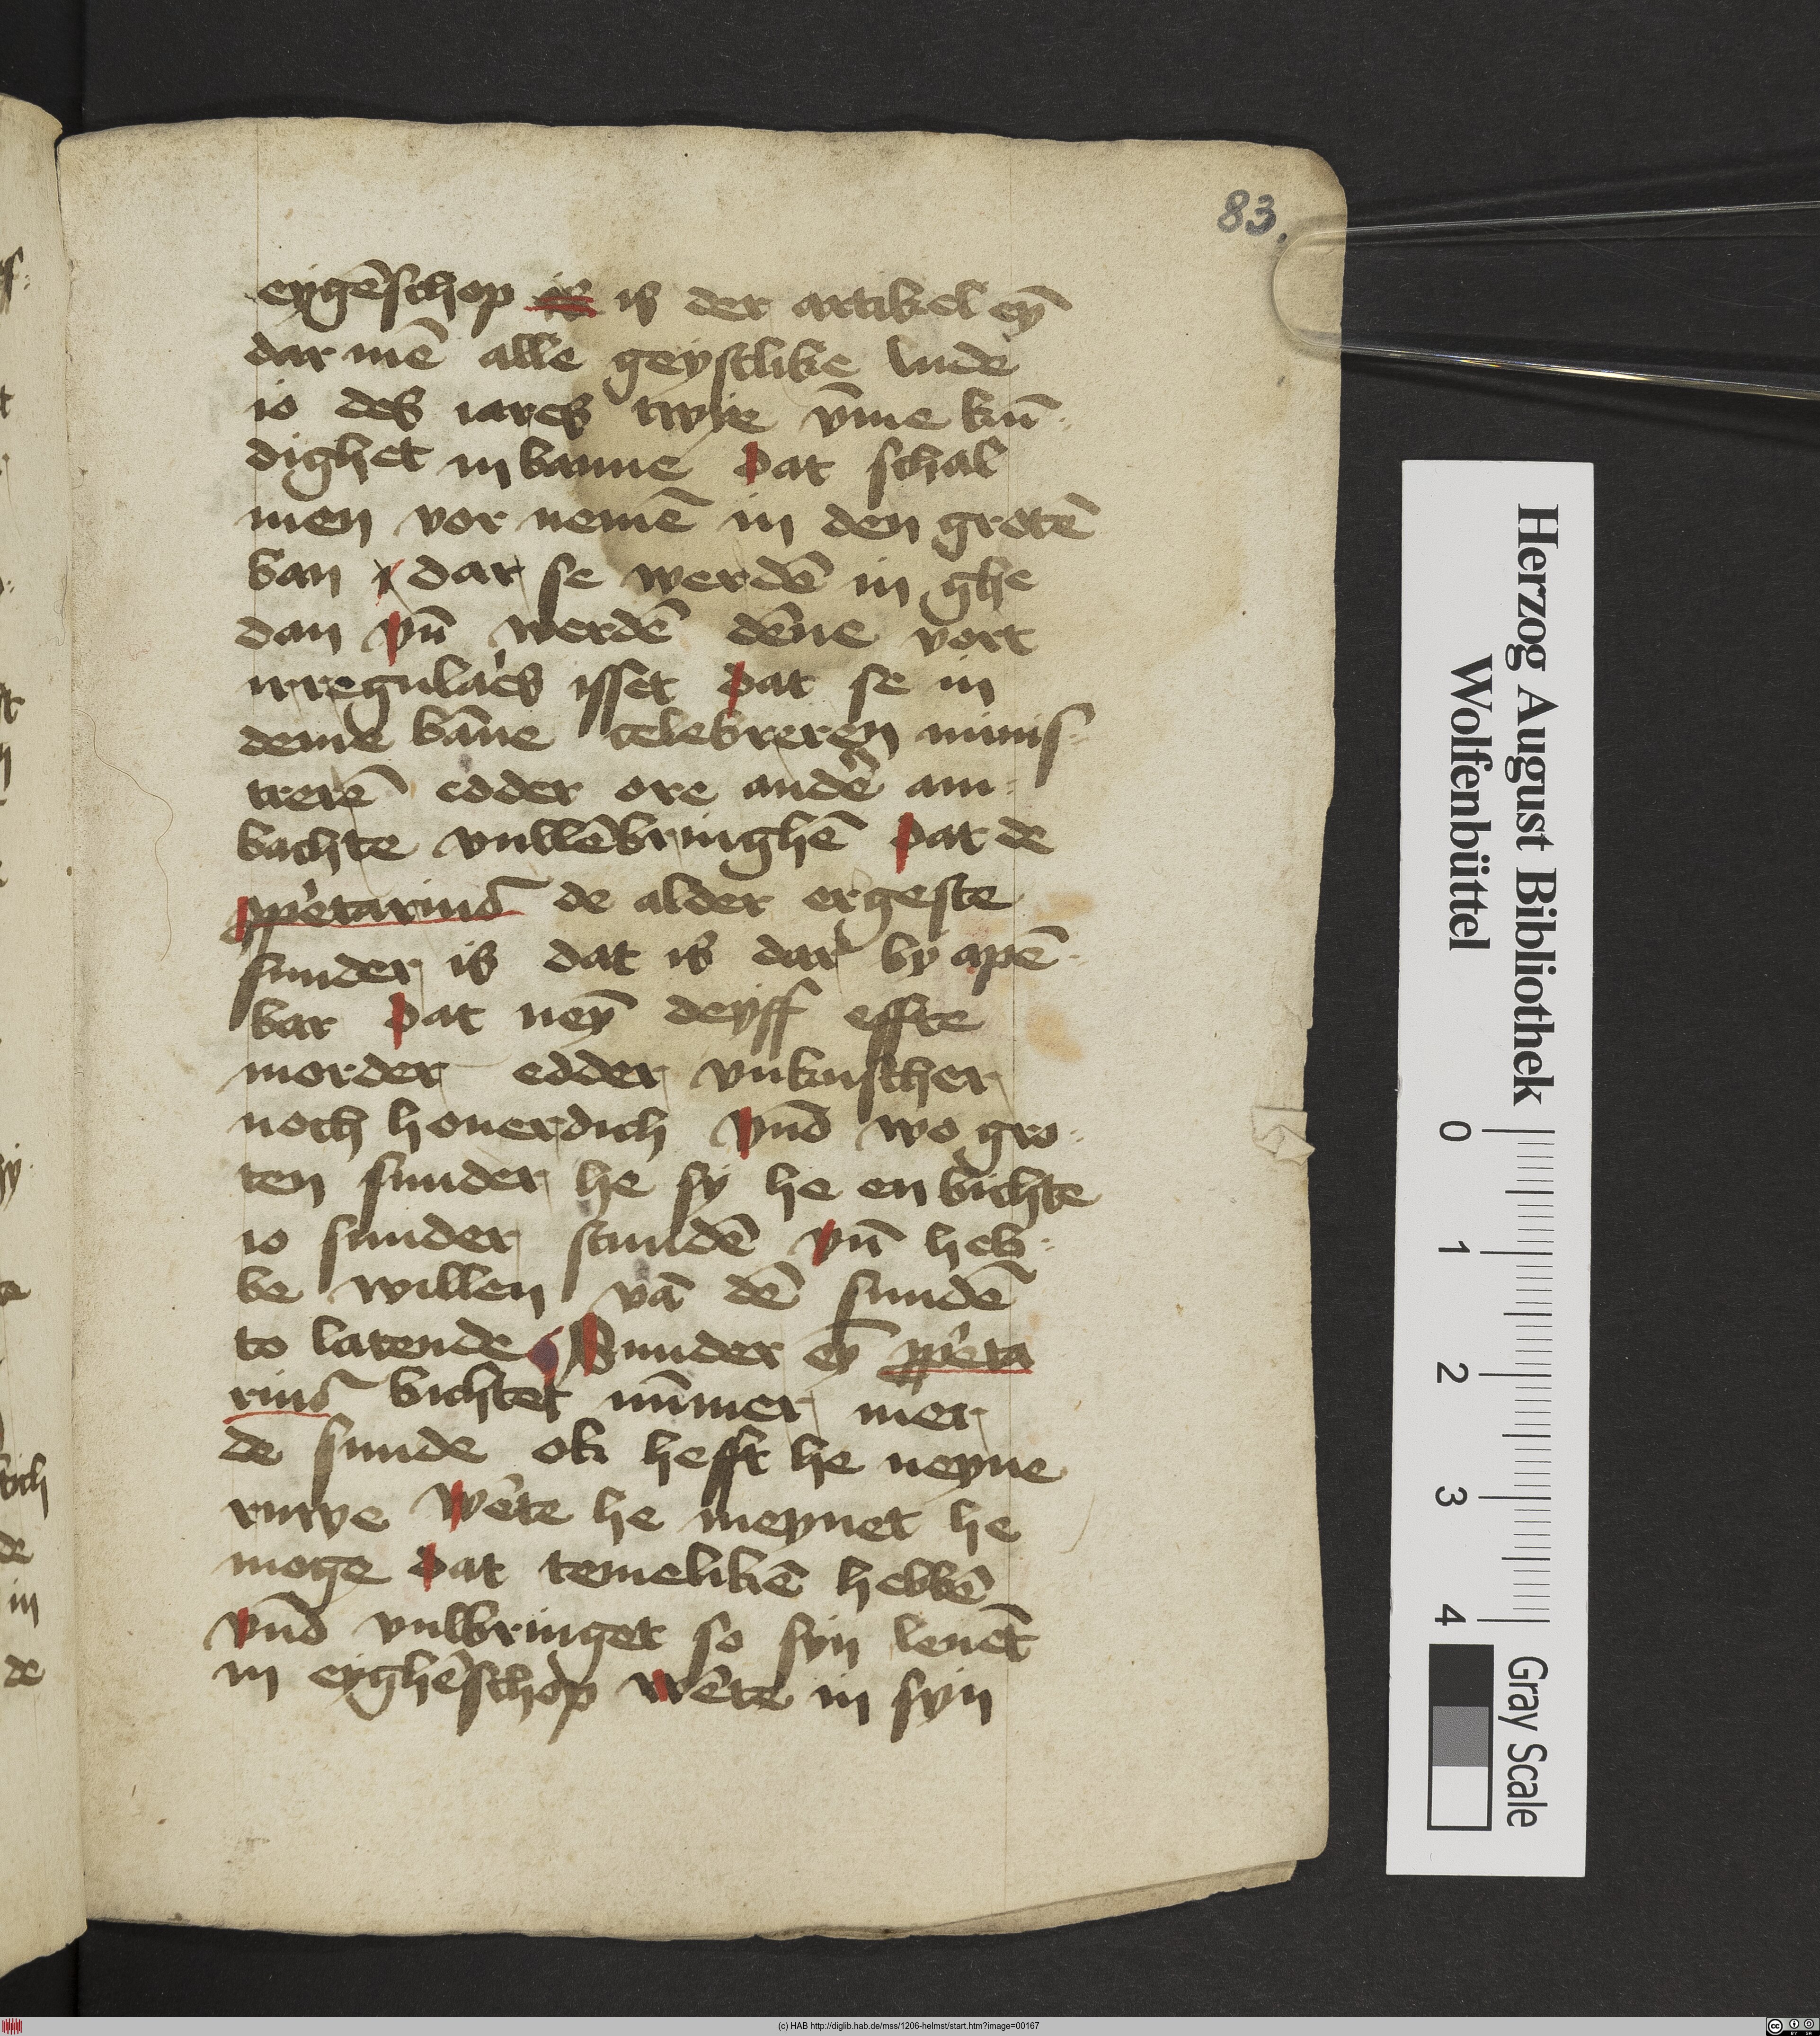 83.
eygēschop is is der artikel eȳ
dar mē alle geystlike lude
io des iares twye v̄me kū-
dighet in banne Dat schal
men vor nemē in den grotē
ban dar se werdē in ghe
dan vn̄ werdē dēne vort
irregulares isset Dat se in
deme bāne celebreren minis-
trerē edder ore andē am-
bachte vullēbringhē Dat de
ppētarius de alder ergeste
sunder is dat is dar by apē-
bar Dat neȳ deyff effte
morder edder vnkuscher
noch houerdich Vnd̄ wo gro-
ten sunder he sy he en bichte
io sunder stundē vn̄ heb-
be willen vā dē sundē
to latende Sunder eȳ ppēta
rius bichtet nūmer mer
de sunde ok hefft he neyne
ruwe Wēte he meynet he
moge dat temelikē hebbē
Vnd̄ vulbringet so syn leuēt
in eyghēschop wēte in syn
Herzog August Bibliothek
Wolfenbüttel
0 1 2 3 4
Gray Scale
(c) HAB http://diglib.hab.de/mss/1206-helmst/start.htm?image=00167